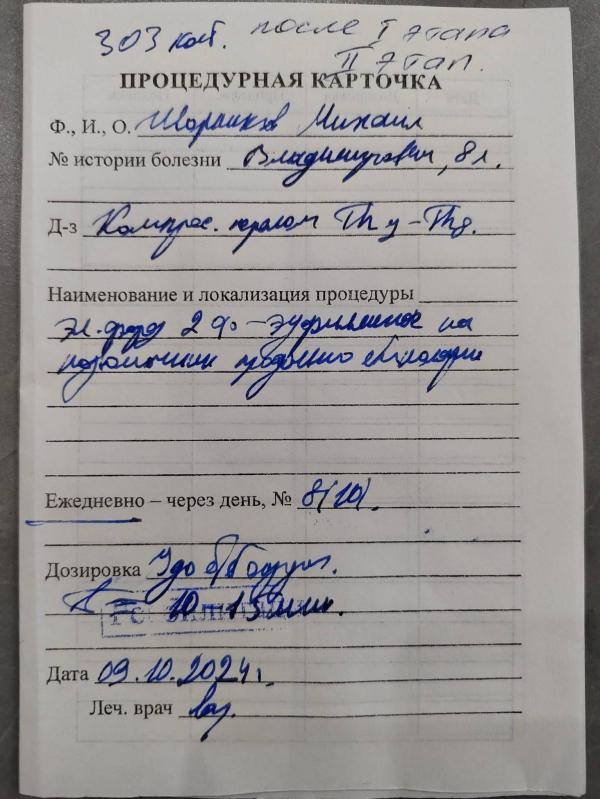 303 каб. после I этапа
II этап.
ПРОЦЕДУРНАЯ КАРТОЧКА
Ф., И., О. Михаил
№ истории болезни Владимирович, 8 л.
Д-з Компрес. перелом Th
Наименование и локализация процедуры
эл. 2% эуфиллином на
позвоночник продольно
Ежедневно – через день, № 8(10).
Дозировка
10 15 мин.
Дата 09.10.2024г.
Леч. врач